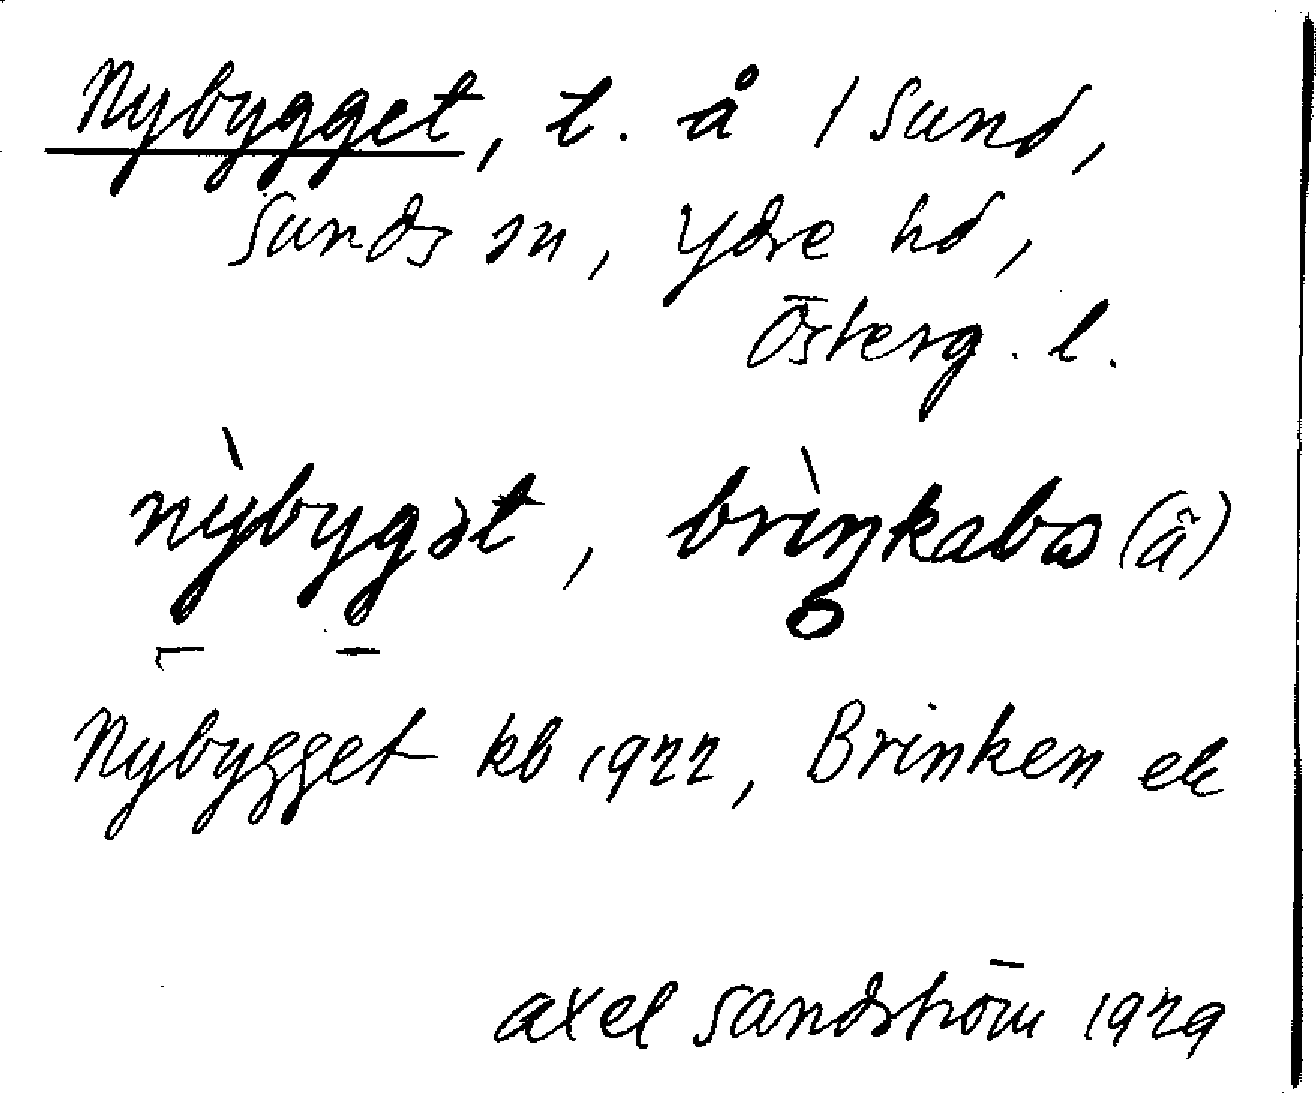 Nybygget, l. å 1 Sund,
Sunds sn, Ydre hd,
Österg. l.
nỳbygət, brìŋkabω (å)
Nybygget kb 1922, Brinken ek
Axel Sandström 1929